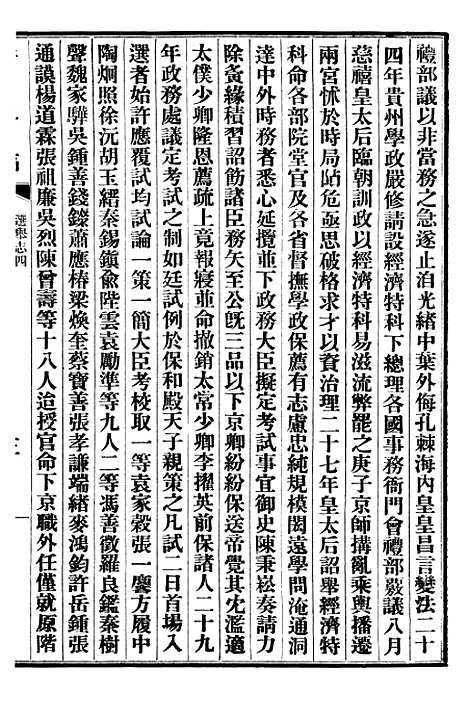 禮部議以非當務之急遂止洎光緒中葉外侮孔棘海內皇皇昌言變法二十
四年貴州學政嚴修請設經濟特科下總理各國事務衙門會禮部覈議八月
慈禧皇太后臨朝訓政以經濟特科易滋流弊罷之庚子京師搆亂乘輿播遷
兩宮怵於時局阽危亟思破格求才以資治理二十七年皇太后詔舉經濟特
科命各部院堂官及各省督撫學政保薦有志慮忠純規模閎遠學問淹通洞
達中外時務者悉心延攬並下政務大臣擬定考試事宜御史陳秉崧奏請力
除夤緣積習詔飭諸臣務矢至公旣三品以下京卿紛紛保送帝覺其尤濫適
太僕少卿隆恩薦疏上竟報寢並命撤銷太常少卿李擢英前保諸人二十九
年政務處議定考試之制如廷試例於保和殿天子親策之凡試二日首場入
選者始許應覆試均試論一策一簡大臣考校取一等袁家穀張一麐方履中
陶炯照徐沅胡玉縉秦錫鎮兪陛雲袁勵準等九人二等馮善徵羅良鑑秦樹
聲魏家驊吳鍾善錢鏐蕭應椿梁煥奎蔡寶善張孝謙端緒麥鴻鈞許岳鍾張
通謨楊道霖張祖廉吳烈陳曾壽等十八人迨授官命下京職外任僅就原階
選舉志四